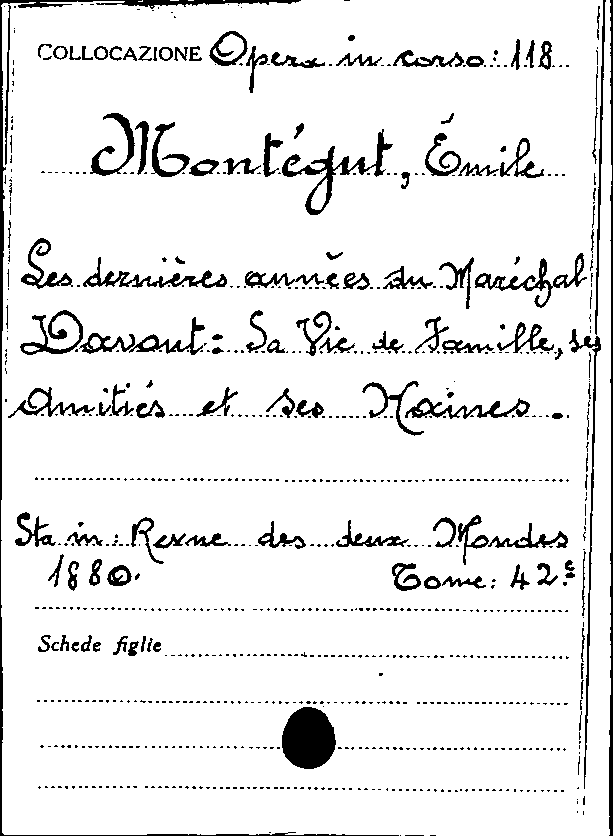 COLLOCAZIONE Opera in corso: 118
Montégut, Émile
Les dernières années du Maréchal
Davout: Sa Vie de Famille, ses
Amitiés et ses Haines.
Sta in: Revue des deux Mondes
1880. Tome: 42e
Schede figlie